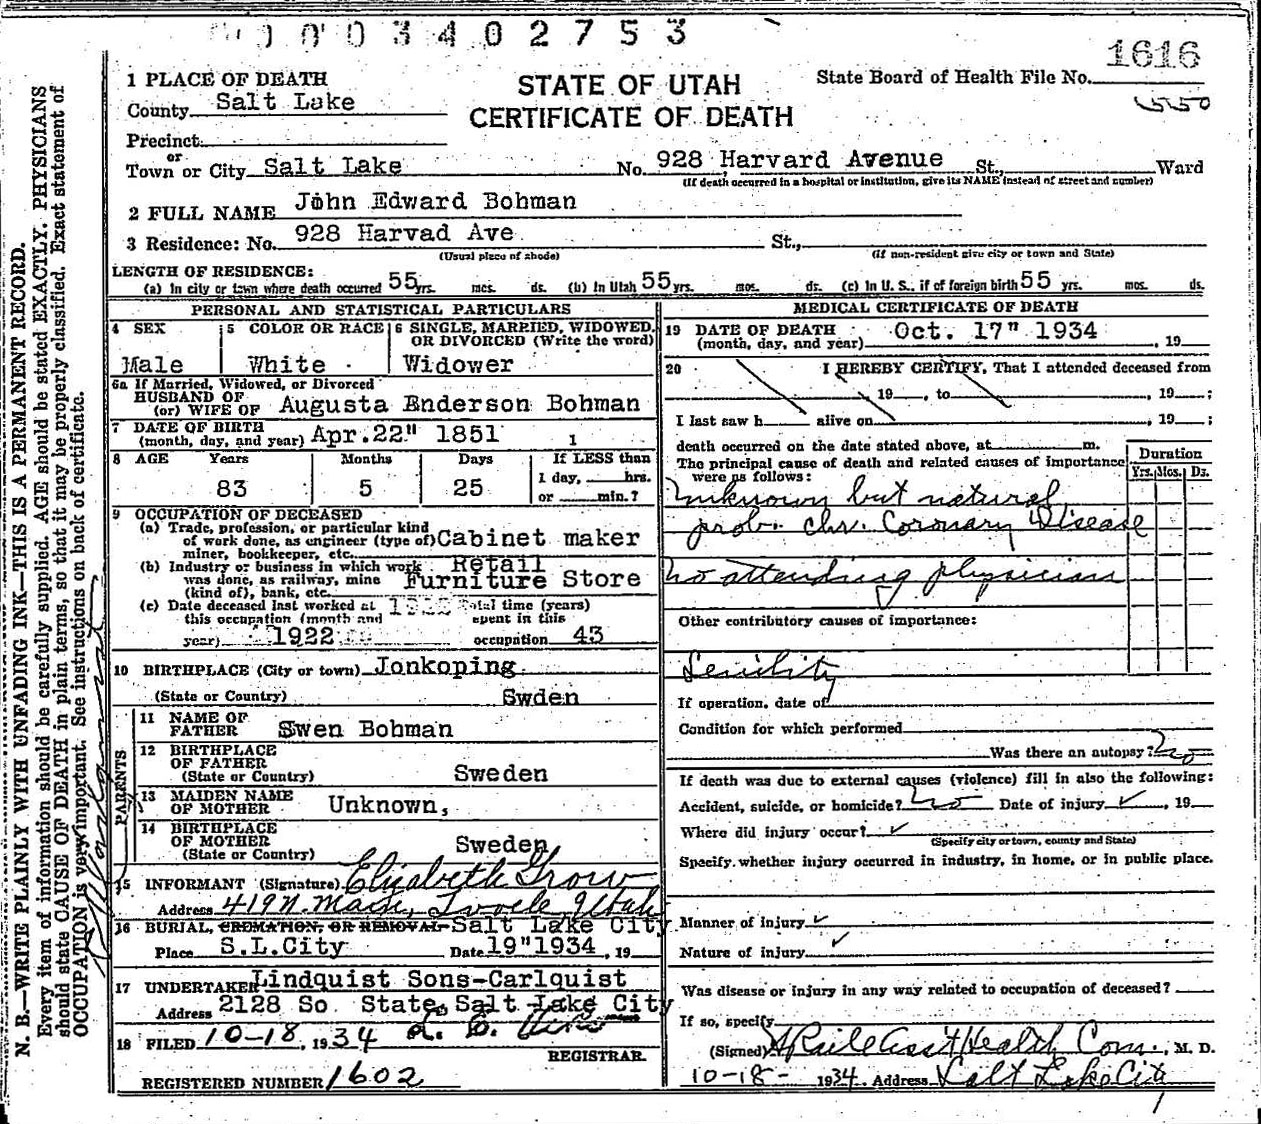 0 0 0 3 4 0 2 7 5 3
1616
1 PLACE OF DEATH
STATE OF UTAH
CERTIFICATE OF DEATH
State Board of Health File No.
County Salt Lake
Precinct
or
Town or City Salt Lake No. 928 Harvard Avenue St., Ward
(If death occurred in a hospital or institution, give its NAME instead of street and number)
2 FULL NAME John Edward Bohman
3 Residence: No. 928 Harvad Ave St.,
(Usual place of abode) (If non-resident give city or town and State)
LENGTH OF RESIDENCE:
(a) In city or town where death occurred 55 yrs. mos. ds. (b) In Utah 55 yrs. mos. ds. (c) In U. S., if of foreign birth 55 yrs. mos. ds.
PERSONAL AND STATISTICAL PARTICULARS
4 SEX Male
5 COLOR OR RACE White
6 SINGLE, MARRIED, WIDOWED, OR DIVORCED (Write the word) Widower
6a If Married, Widowed, or Divorced
HUSBAND OF
(or) WIFE OF Augusta Enderson Bohman
7 DATE OF BIRTH
(month, day, and year) Apr. 22" 1851
8 AGE Years Months Days If LESS than
83 5 25 1 day, hrs.
or min.?
9 OCCUPATION OF DECEASED
(a) Trade, profession, or particular kind
of work done, as engineer (type of) Cabinet maker
miner, bookkeeper, etc.
(b) Industry or business in which work Retail
was done, as railway, mine Furniture Store
(kind of), bank, etc.
(c) Date deceased last worked at Total time (years)
this occupation (month and spent in this
year) 1922 occupation 43
10 BIRTHPLACE (City or town) Jonkoping
(State or Country) Swden
PARENTS
11 NAME OF
FATHER Swen Bohman
12 BIRTHPLACE
OF FATHER
(State or Country) Sweden
13 MAIDEN NAME
OF MOTHER Unknown,
14 BIRTHPLACE
OF MOTHER
(State or Country) Sweden
15 INFORMANT (Signature) Elizabeth Grow
Address 419 N. Main, Tooele Utah
16 BURIAL, CREMATION, OR REMOVAL Salt Lake City
Place S.L.City Date 19" 1934, 19
17 UNDERTAKER Lindquist Sons-Carlquist
Address 2128 So State, Salt Lake City
18 FILED 10-18, 1934
REGISTRAR.
REGISTERED NUMBER 1602
MEDICAL CERTIFICATE OF DEATH
19 DATE OF DEATH Oct. 17" 1934
(month, day, and year) , 19
20 I HEREBY CERTIFY, That I attended deceased from
19 , to , 19 ;
I last saw h alive on , 19 ;
death occurred on the date stated above, at m.
The principal cause of death and related causes of importance
were as follows:
Duration
Yrs. Mos. Ds.
Unknown but natural
prob. chr. Coronary Disease
no attending physician
Other contributory causes of importance:
Senility
If operation, date of
Condition for which performed
Was there an autopsy? no
If death was due to external causes (violence) fill in also the following:
Accident, suicide, or homicide? no Date of injury ✓, 19
Where did injury occur? ✓
(Specify city or town, county and State)
Specify whether injury occurred in industry, in home, or in public place.
Manner of injury ✓
Nature of injury ✓
Was disease or injury in any way related to occupation of deceased?
If so, specify
(Signed) Asst Health Com., M. D.
10-18- 1934 Address Salt Lake City
N. B.—WRITE PLAINLY WITH UNFADING INK—THIS IS A PERMANENT RECORD.
Every item of information should be carefully supplied. AGE should be stated EXACTLY. PHYSICIANS
should state CAUSE OF DEATH in plain terms, so that it may be properly classified. Exact statement of
OCCUPATION is very important. See instructions on back of certificate.